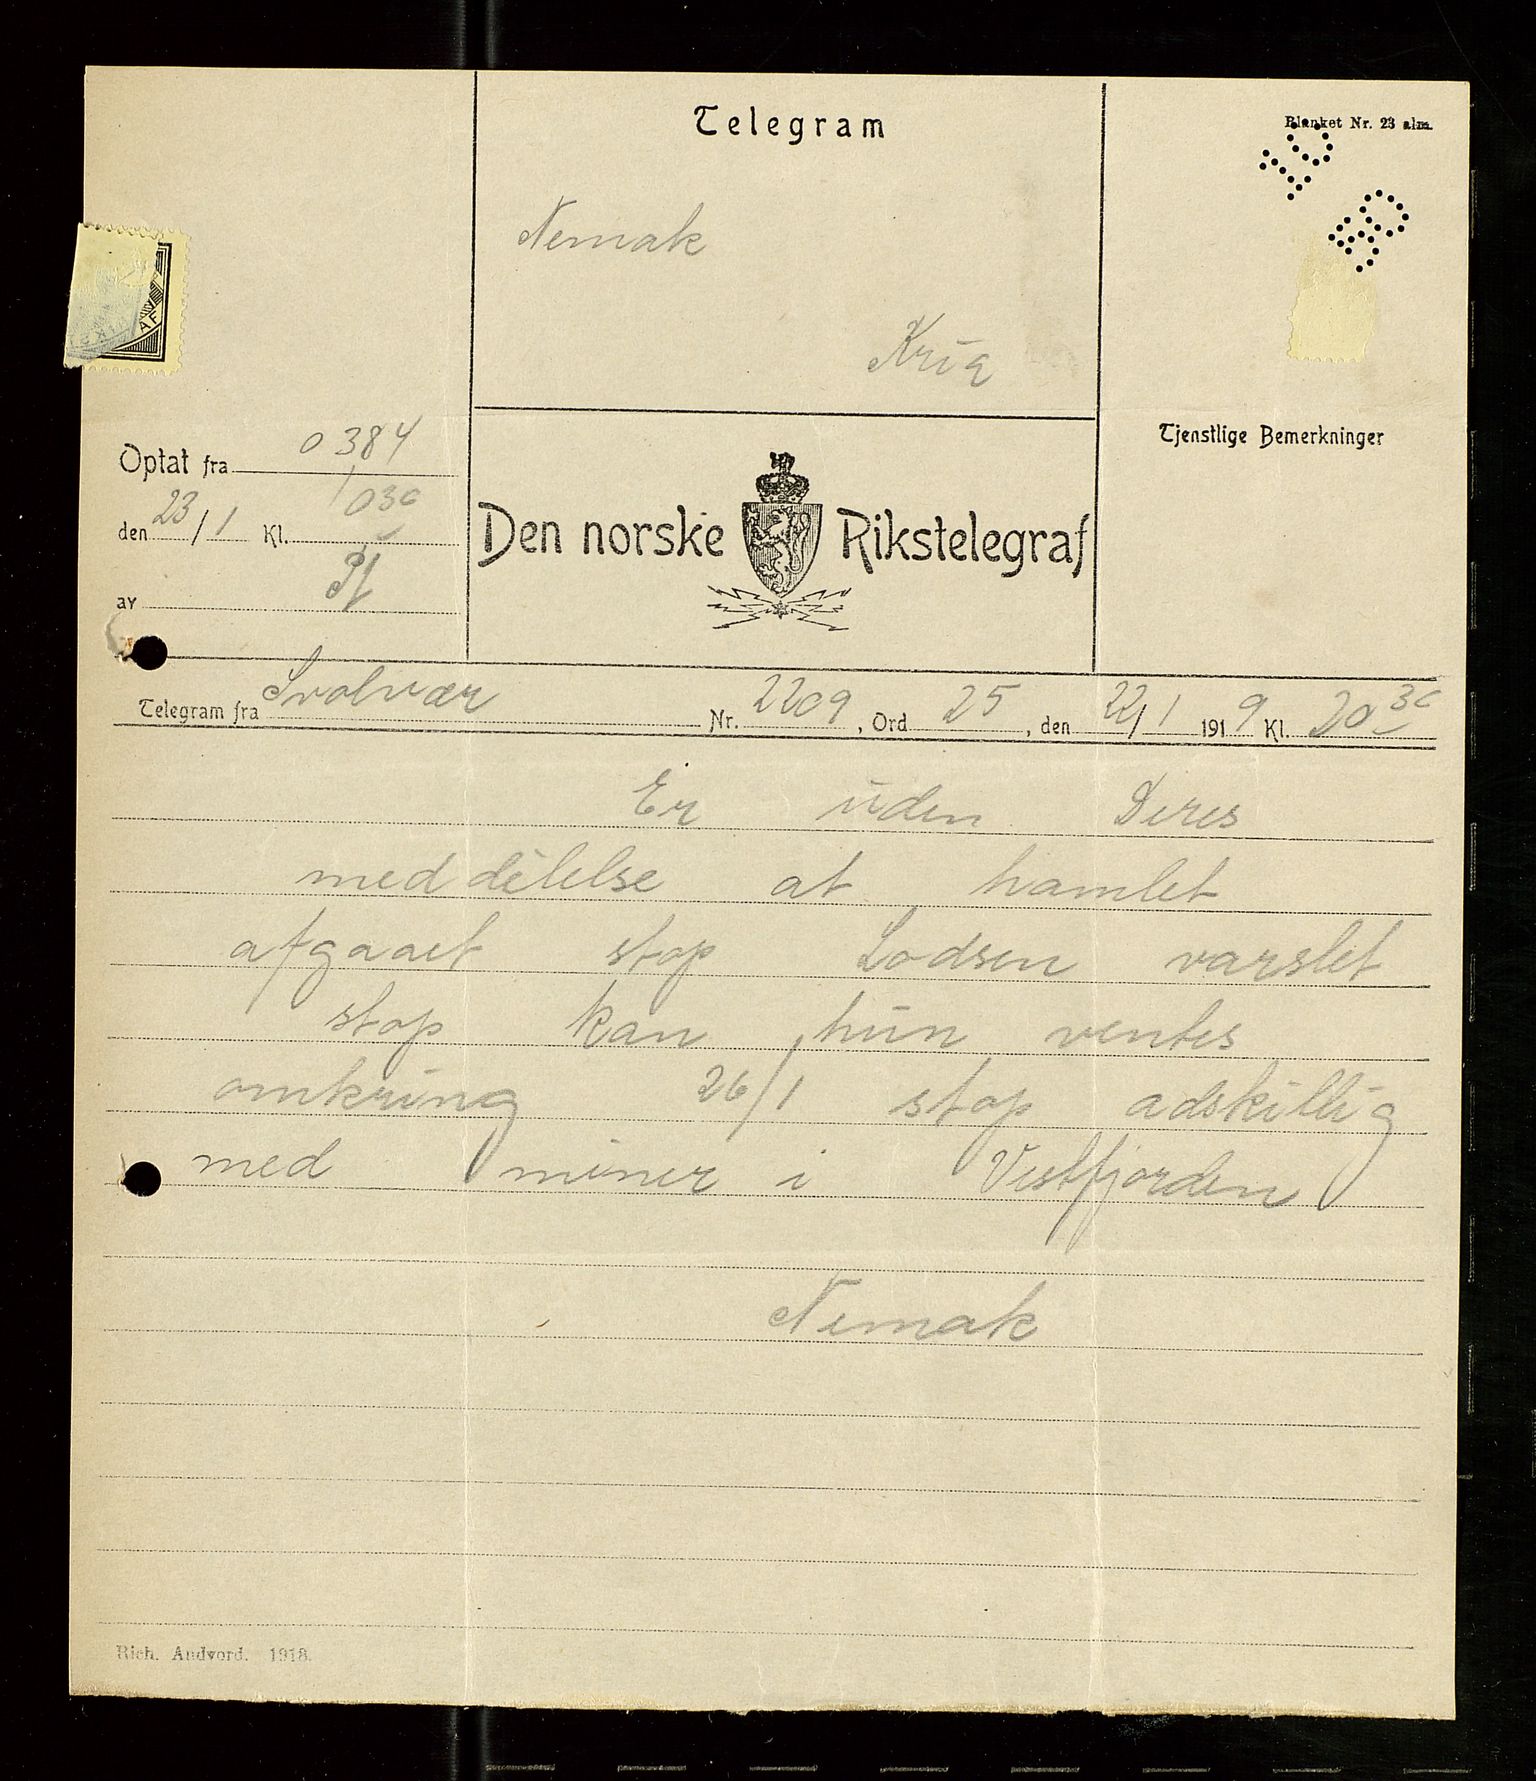 Telegram
Blanket Nr. 23 alm.
Nemak
Kria
Optat fra 0384
den 23/1 Kl. 1030
av
Den norske Rikstelegraf
Tjenstlige Bemerkninger
Telegram fra Svolvær Nr. 2209, Ord 25, den 22/1 1919 Kl. 20 30
Er uden Deres
meddelelse at hamlet
afgaaet stop Lodsen varslet
stop kan hun ventes
omkring 26/1 stop adskillig
med miner i Vestfjorden
Nemak
Rich. Andvord. 1918.